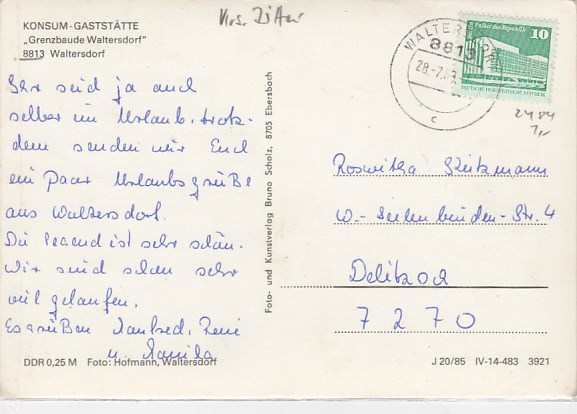 Krs. Zittau
KONSUM-GASTSTÄTTE
„Grenzbaude Waltersdorf"
8813 Waltersdorf
WALTERSDORF
8813
28.-7.
c
Palast der Republik
10
DEUTSCHE DEMOKRATISCHE REPUBLIK
2484
7,-
Ihr seid ja auch
selber im Urlaub, trotz-
dem senden wir Euch
ein paar Urlaubsgrüße
aus Waltersdorf.
Die Gegend ist sehr schön.
Wir sind schon sehr
viel gelaufen.
Es grüßen Manfred,
u.
Roswitha
W.-Seelenbinder-Str. 4
Delitzsch
7270
Foto- und Kunstverlag Bruno Scholz, 8705 Ebersbach
DDR 0,25 M Foto: Hofmann, Waltersdorf
J 20/85 IV-14-483 3921